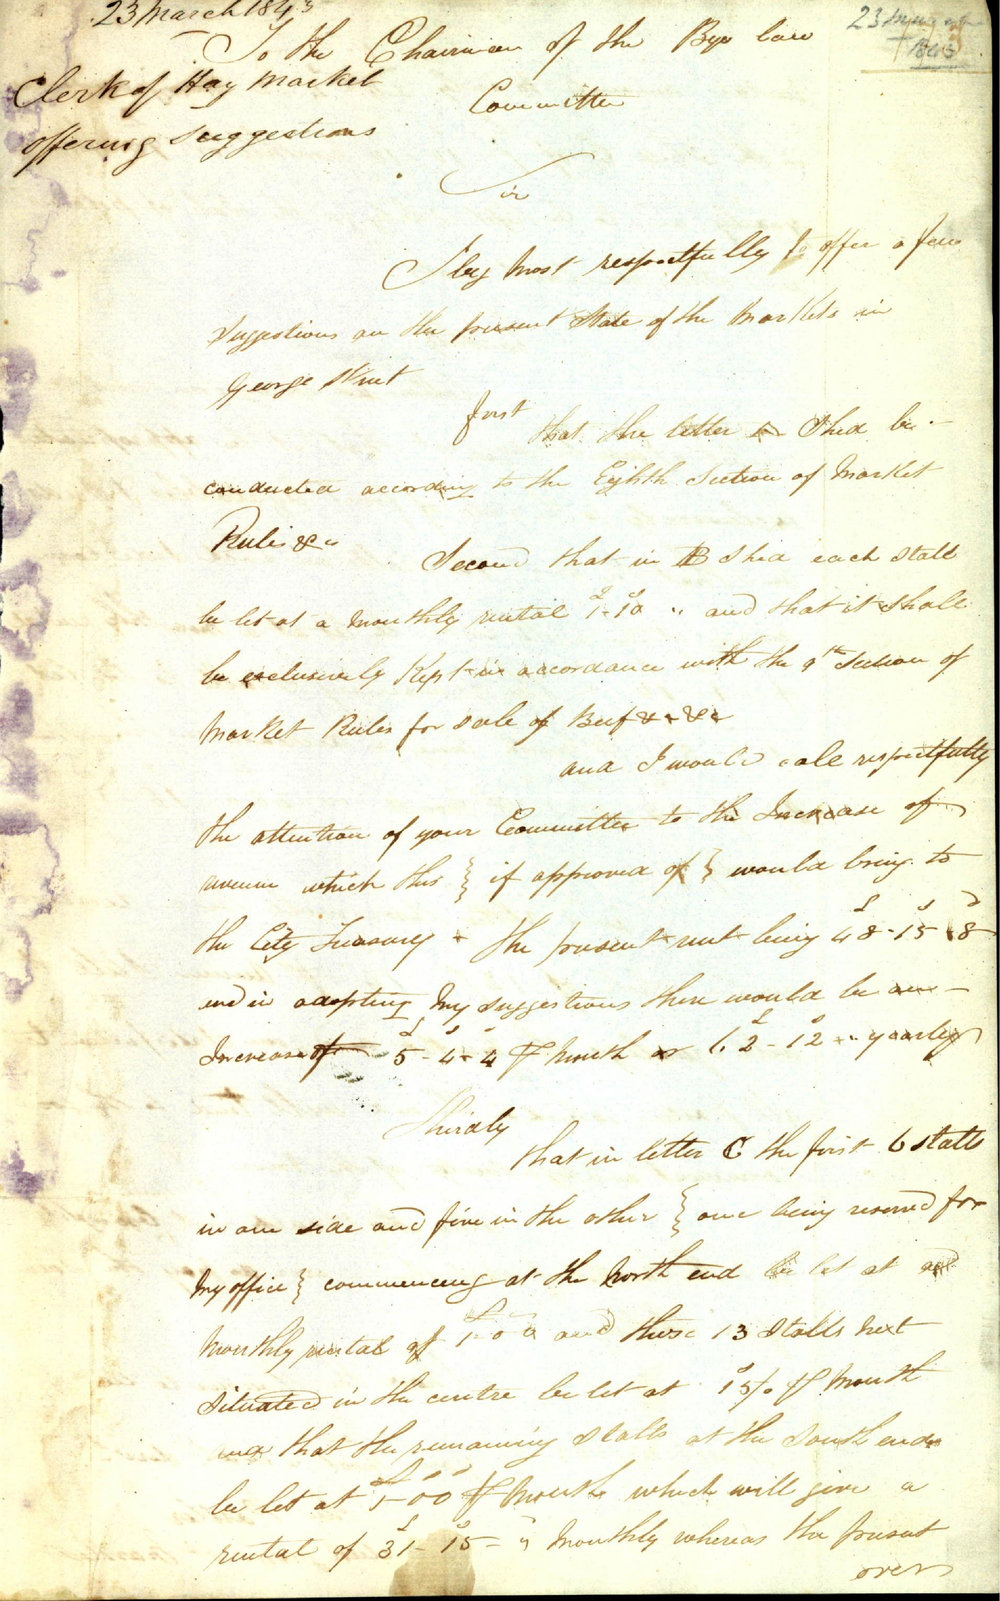 23 March 1843
To the Chairman of the Bye law
Committee
Clerk of Hay Market
offering suggestions
23 March
1843
Sir
I beg most respectfully to offer a few
suggestions on the present State of the Markets in
George Street
first
that the letter A Shed be
conducted according to the Eighth Section of Market
Rules &c
Second that in B Shed each stall
be let at a monthly rental £1-10 " and that it shall
be exclusively Kept in accordance with the 9th Section of
Market Rules for sale of Beef &c &c
and I would call respectfully
the attention of your Committee to the Increase of
revenue which this } if approved of } would bring to
the City Treasury - the present rent being £48-15-8
and in adopting My suggestions there would be an
Increase of £5-4-4 ⅌ Month or £62-12-" yearly
Thirdly
that in letter C the first 6 stalls
in one side and five in the other } one being reserved for
My office } commencing at the North end be let at a
Monthly rental of £1-0-0 and those 13 Stalls next
situated in the centre be let at 15/- ⅌ Month
and that the remaining Stalls at the South end
be let at £1-0-0 ⅌ Month which will give a
rental of £31-15-" Monthly whereas the present
over